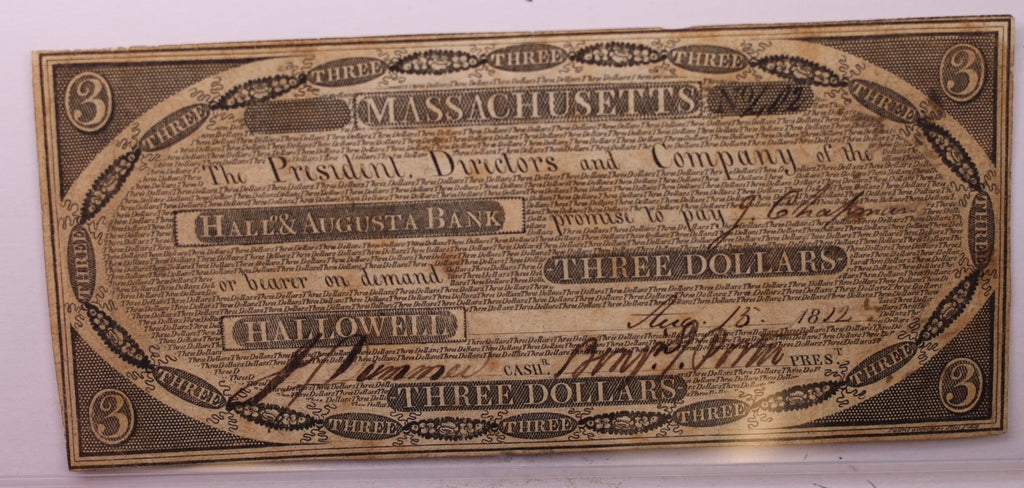 3 THREE THREE THREE THREE THREE 3
MASSACHUSETTS No
The President, Directors and Company of the
HALL & AUGUSTA BANK promise to pay J Chapman
or bearer on demand THREE DOLLARS
HALLOWELL Aug. 15 1812
CASHr. PREST.
THREE DOLLARS
3 THREE THREE THREE THREE THREE 3
THREE
THREE